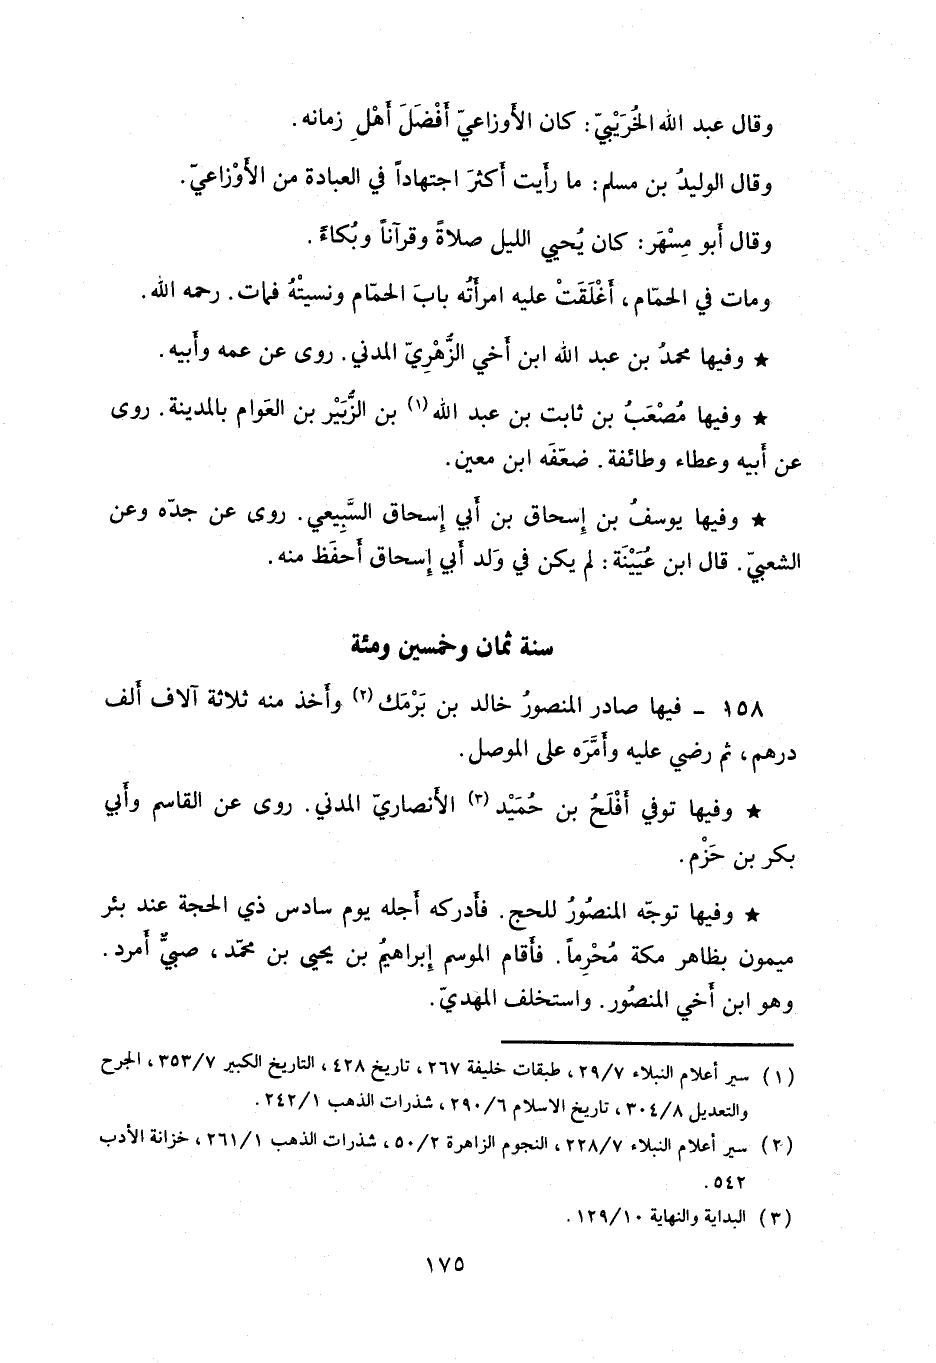 وقال عبد الله الخُرَيْبيّ: كان الأَوزاعيّ أَفْضَلَ أَهْلِ زمانه.
وقال الوليدُ بن مسلم: ما رأَيت أَكثرَ اجتهاداً في العبادة من الأَوْزاعيّ.
وقال أَبو مِسْهَر: كان يُحيي الليل صلاةً وقرآناً وبُكاءً.
ومات في الحمّام، أَغْلَقَتْ عليه امرأَتُه بابَ الحمّام ونسيتْهُ فمات. رحمه الله.
★ وفيها محمدُ بن عبد الله ابن أَخي الزُّهْرِيّ المدني. روى عن عمه وأَبيه.
★ وفيها مُصْعَبُ بن ثابت بن عبد الله (١) بن الزُّبَيْر بن العَوام بالمدينة. روى
عن أَبيه وعطاء وطائفة. ضعّفَه ابن معين.
★ وفيها يوسفُ بن إسحاق بن أَبي إسحاق السَّبِيعي. روى عن جدّه وعن
الشعبيّ. قال ابن عُيَيْنَة: لم يكن في وَلد أَبي إسحاق أَحفَظ منه.
سنة ثمان وخمسين ومئة
١٥٨ - فيها صادر المنصورُ خالد بن بَرْمَك (٢) وأَخذ منه ثلاثة آلاف أَلف
درهم، ثم رضي عليه وأَمَّرَه على الموصل.
★ وفيها توفي أَفْلَحُ بن حُمَيْد (٣) الأَنصاريّ المدني. روى عن القاسم وأَبي
بكر بن حَزْم.
★ وفيها توجّه المنصُورُ للحج. فأَدركه أَجله يوم سادس ذي الحجة عند بئر
ميمون بظاهر مكة مُحْرِماً. فأَقام الموسم إبراهيمُ بن يحيى بن محمّد، صبيٌّ أَمرد.
وهو ابن أَخي المنصُور. واستخلف المهديّ.
(١) سير أعلام النبلاء ٢٩/٧، طبقات خليفة ٢٦٧، تاريخ ٤٢٨، التاريخ الكبير ٣٥٣/٧، الجرح
والتعديل ٣٠٤/٨، تاريخ الاسلام ٢٩٠/٦، شذرات الذهب ٢٤٢/١.
(٢) سير أعلام النبلاء ٢٢٨/٧، النجوم الزاهرة ٥٠/٢، شذرات الذهب ٢٦١/١، خزانة الأدب
٥٤٢.
(٣) البداية والنهاية ١٢٩/١٠.
١٧٥